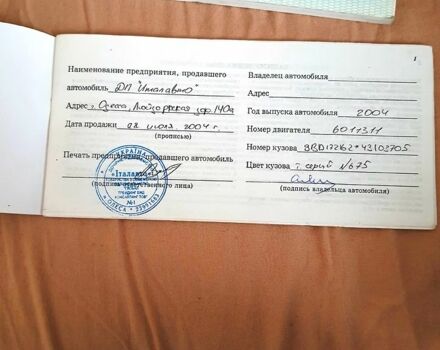 1
Наименование предприятия, продавшего
автомобиль ДП "Италавто"
Адрес г. Одесса,
Дата продажи 02 июля 2004 г.
(прописью)
Печать предприятия, продавшего автомобиль
(подпись ответственного лица)
УКРАЇНА
«Італавто»
№1
ОДЕСА
Владелец автомобиля
Адрес
Год выпуска автомобиля 2004
Номер двигателя 6011311
Номер кузова
Цвет кузова т. серый №675
(подпись владельца автомобиля)